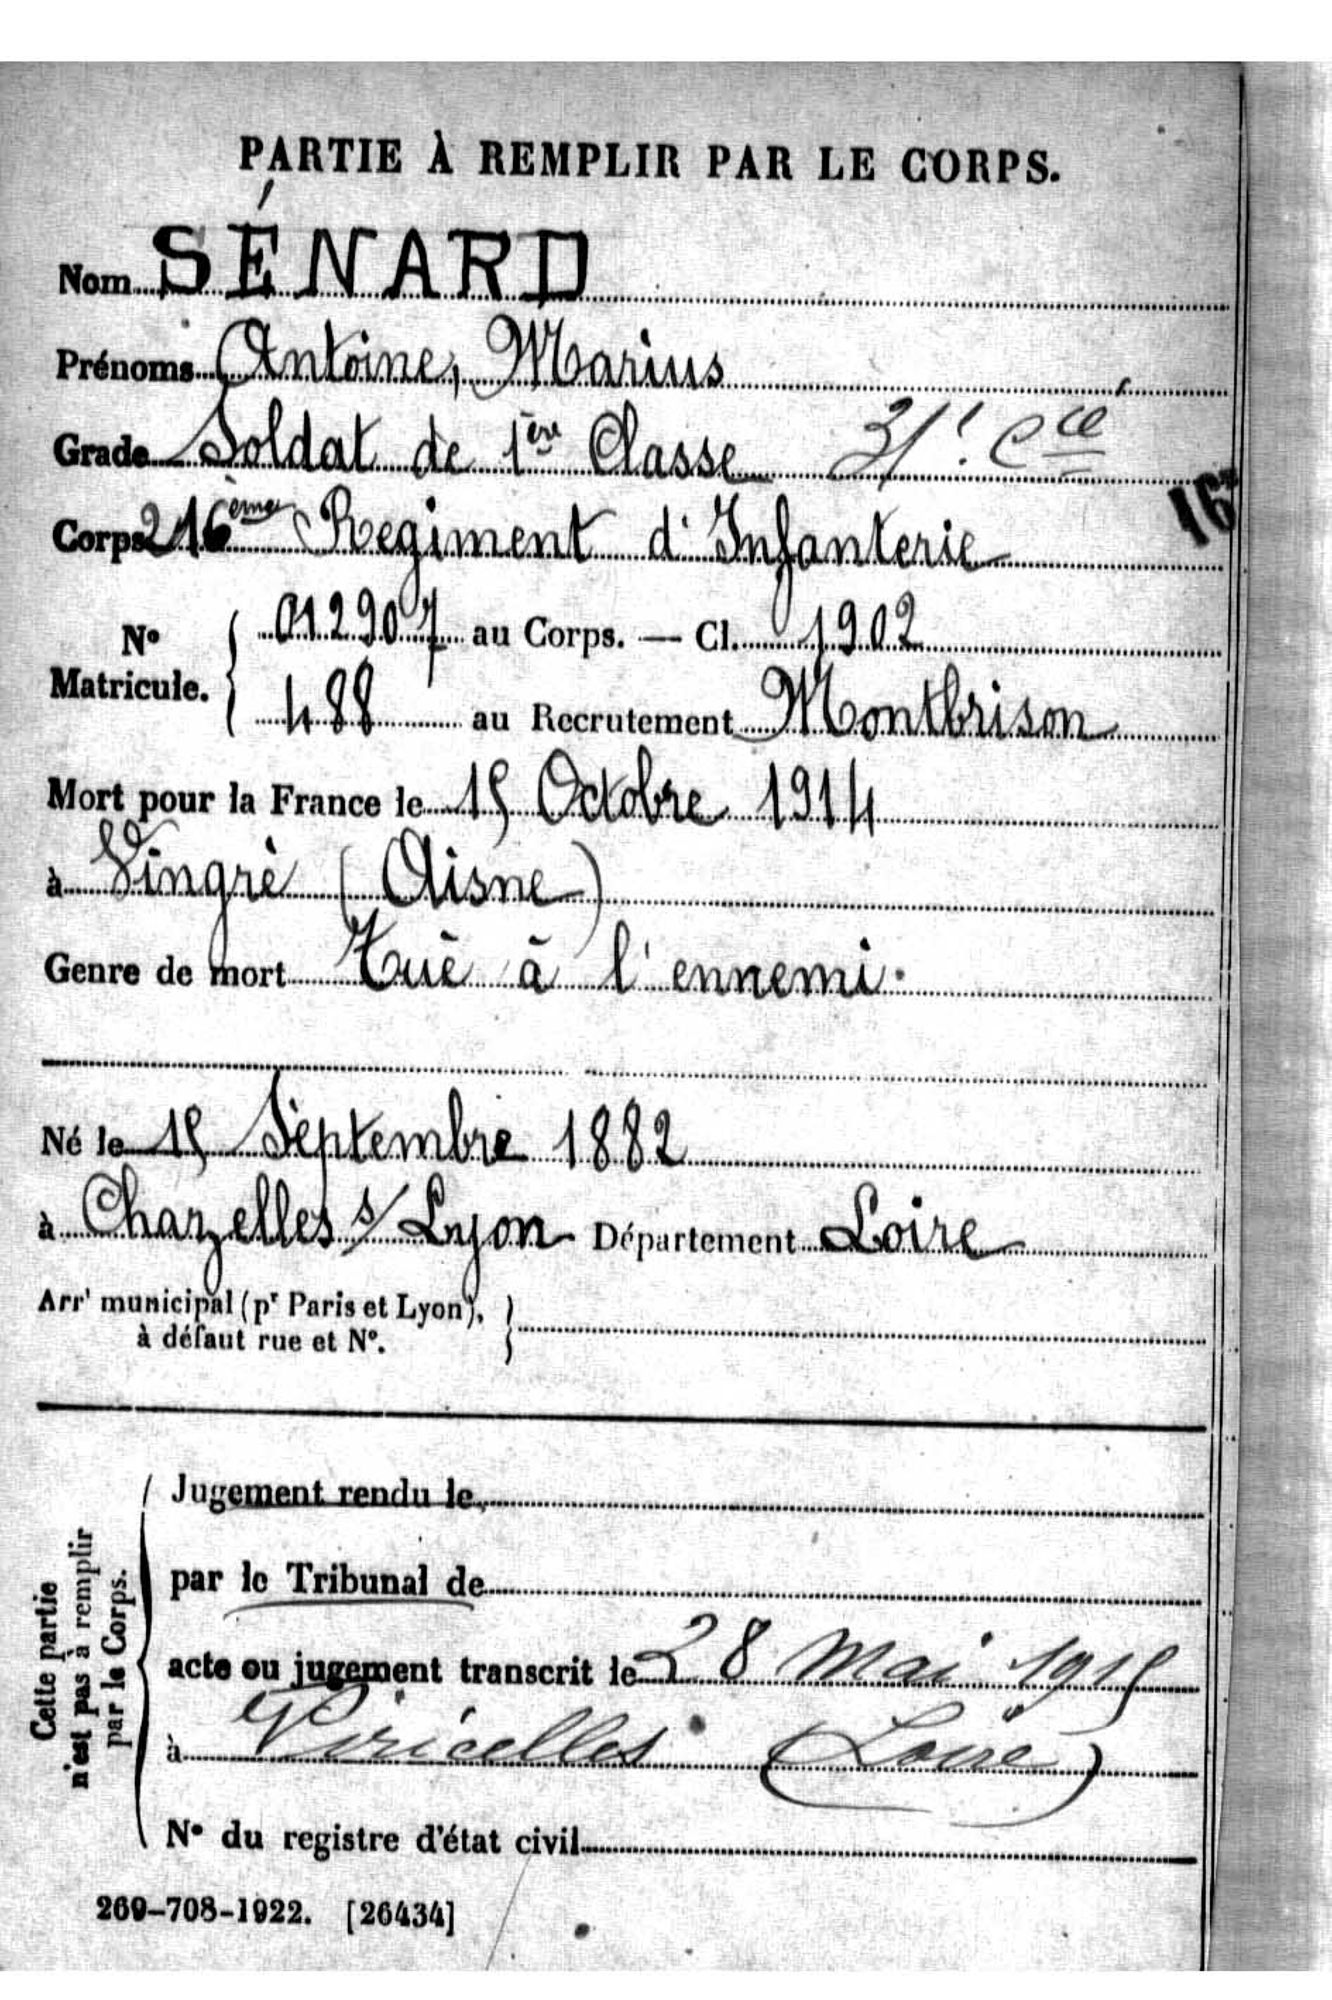 PARTIE À REMPLIR PAR LE CORPS.
Nom SÉNARD
Prénoms Antoine, Marius
Grade Soldat de 1ère Classe
Corps 216ème Régiment d'Infanterie
N° Matricule. 012907 au Corps. — Cl. 1902
488 au Recrutement Montbrison
Mort pour la France le 15 Octobre 1914
à Vingré (Aisne)
Genre de mort Tué à l'ennemi.
Né le 15 Septembre 1882
à Chazelles s/ Lyon Département Loire
Arrt municipal (pr Paris et Lyon),
à défaut rue et N°.
Cette partie n'est pas à remplir par le Corps.
Jugement rendu le
par le Tribunal de
acte ou jugement transcrit le 28 Mai 1915
à Viricelles (Loire)
N° du registre d'état civil
269-708-1922. [26434]